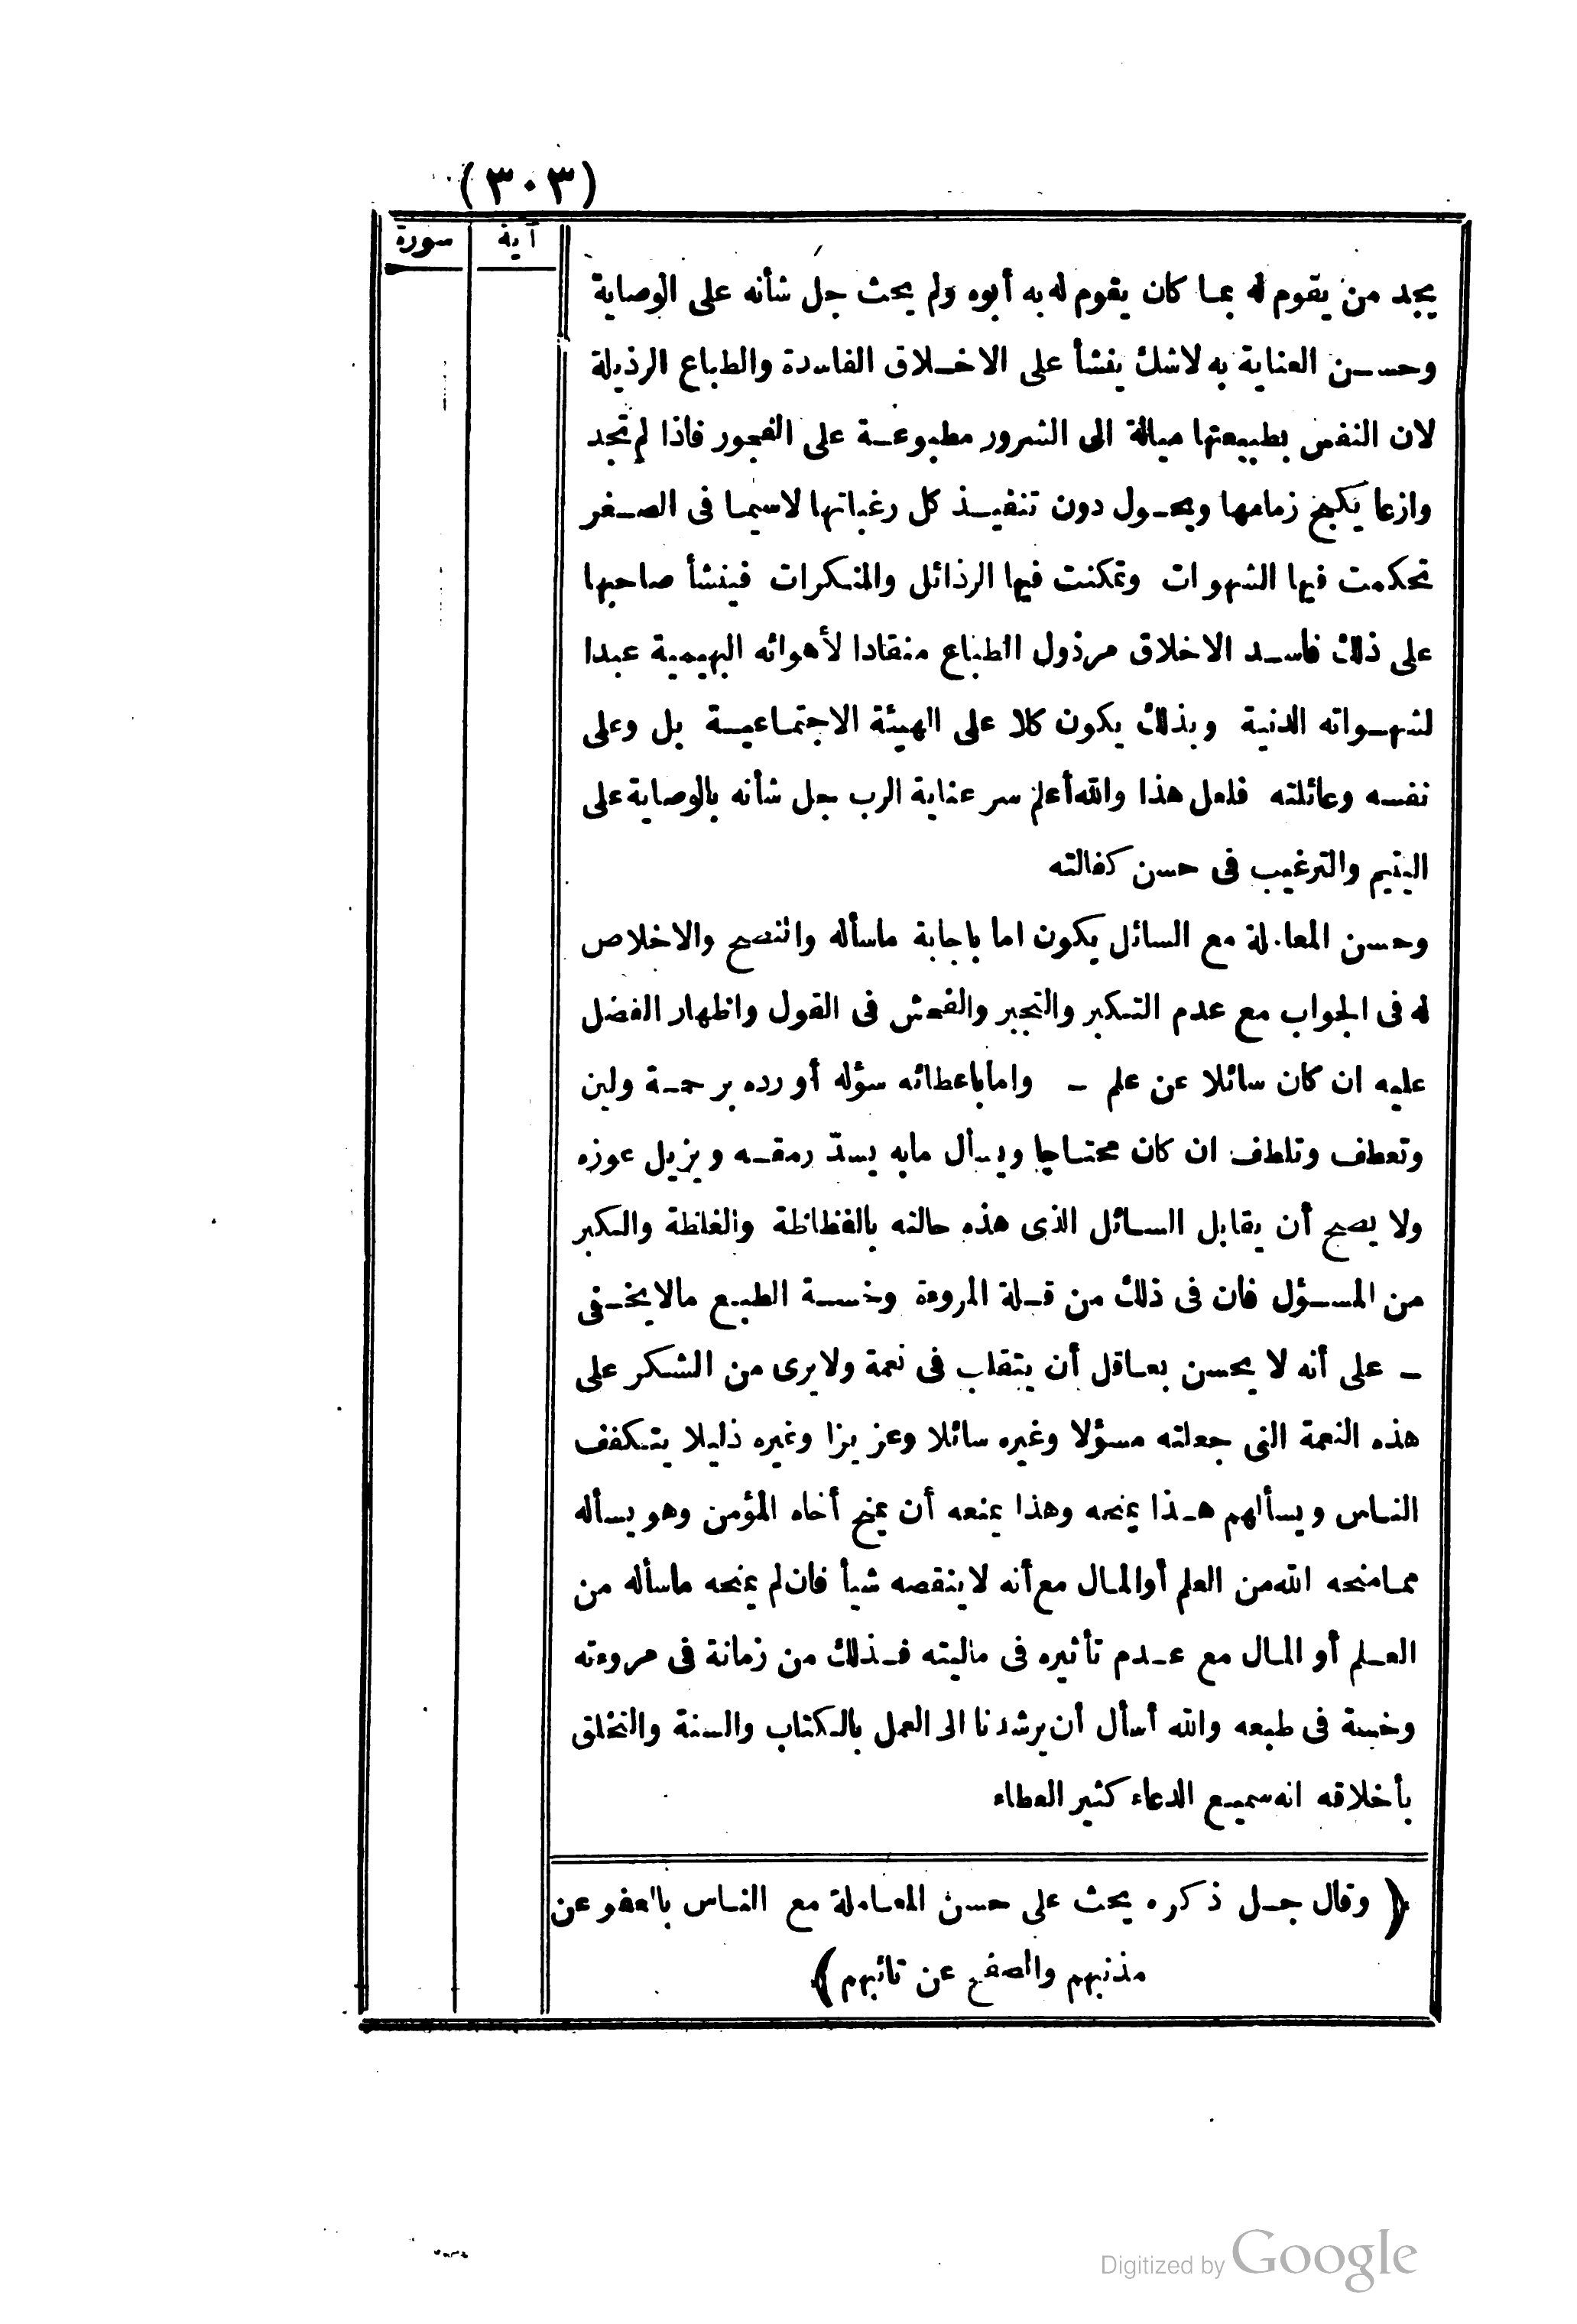 (٣٠٣)
آية سورة
يجد من يقوم له بما كان يقوم له به أبوه ولم يحث جل شأنه على الوصاية
وحسن العناية به لاشك ينشأ على الاخلاق الفاسدة والطباع الرذيلة
لان النفس بطبيعتها ميالة الى الشرور مطبوعة على الفجور فاذا لم تجد
وازعا يكبح زمامها ويحول دون تنفيذ كل رغباتها لاسيما فى الصغر
تحكمت فيها الشهوات وتمكنت فيها الرذائل والمنكرات فينشأ صاحبها
على ذلك فاسد الاخلاق مرذول الطباع منقادا لأهوائه البهيمية عبدا
لشهواته الدنية وبذلك يكون كلا على الهيئة الاجتماعية بل وعلى
نفسه وعائلته فلعل هذا والله أعلم سر عناية الرب جل شأنه بالوصاية على
اليتيم والترغيب فى حسن كفالته
وحسن المعاملة مع السائل يكون اما باجابة ماسأله والنصح والاخلاص
له فى الجواب مع عدم التكبر والتجبر والفحش فى القول واظهار الفضل
عليه ان كان سائلا عن علم - واما باعطائه سؤله أو رده برحمة ولين
وتعطف وتلطف ان كان محتاجا ويسأل مابه يسدّ رمقه ويزيل عوزه
ولا يصح أن يقابل السائل الذى هذه حالته بالفظاظة والغلظة والكبر
من المسؤل فان فى ذلك من قلة المروءة وخسة الطبع مالايخفى
- على أنه لا يحسن بعاقل أن يتقلب فى نعمة ولايرى من الشكر على
هذه النعمة التى جعلته مسؤلا وغيره سائلا وعزيزا وغيره ذليلا يتكفف
الناس ويسألهم هذا يمنحه وهذا يمنعه أن يمنح أخاه المؤمن وهو يسأله
مما منحه الله من العلم أوالمال مع أنه لاينقصه شيأ فان لم يمنحه ماسأله من
العلم أو المال مع عدم تأثيره فى ماليته فذلك من زمانة فى مروءته
وخسة فى طبعه والله أسأل أن يرشدنا الى العمل بالكتاب والسنة والتخلق
بأخلاقه انه سميع الدعاء كثير العطاء
﴿ وقال جل ذكره يحث على حسن المعاملة مع الناس بالعفو عن
مذنبهم والصفح عن تائبهم ﴾
Digitized by Google